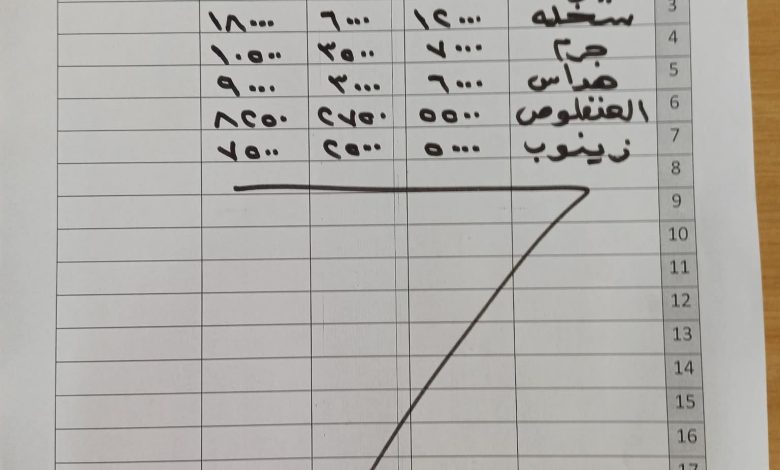 3 سخله ١٢٠٠٠ ٦٠٠٠ ١٨٠٠٠
4 جرم ٧٠٠٠ ٣٥٠٠ ١٠٥٠٠
5 هداس ٦٠٠٠ ٣٠٠٠ ٩٠٠٠
6 العنفلوص ٥٥٠٠ ٢٧٥٠ ٨٢٥٠
7 زينوب ٥٠٠٠ ٢٥٠٠ ٧٥٠٠
8
9
10
11
12
13
14
15
16
17